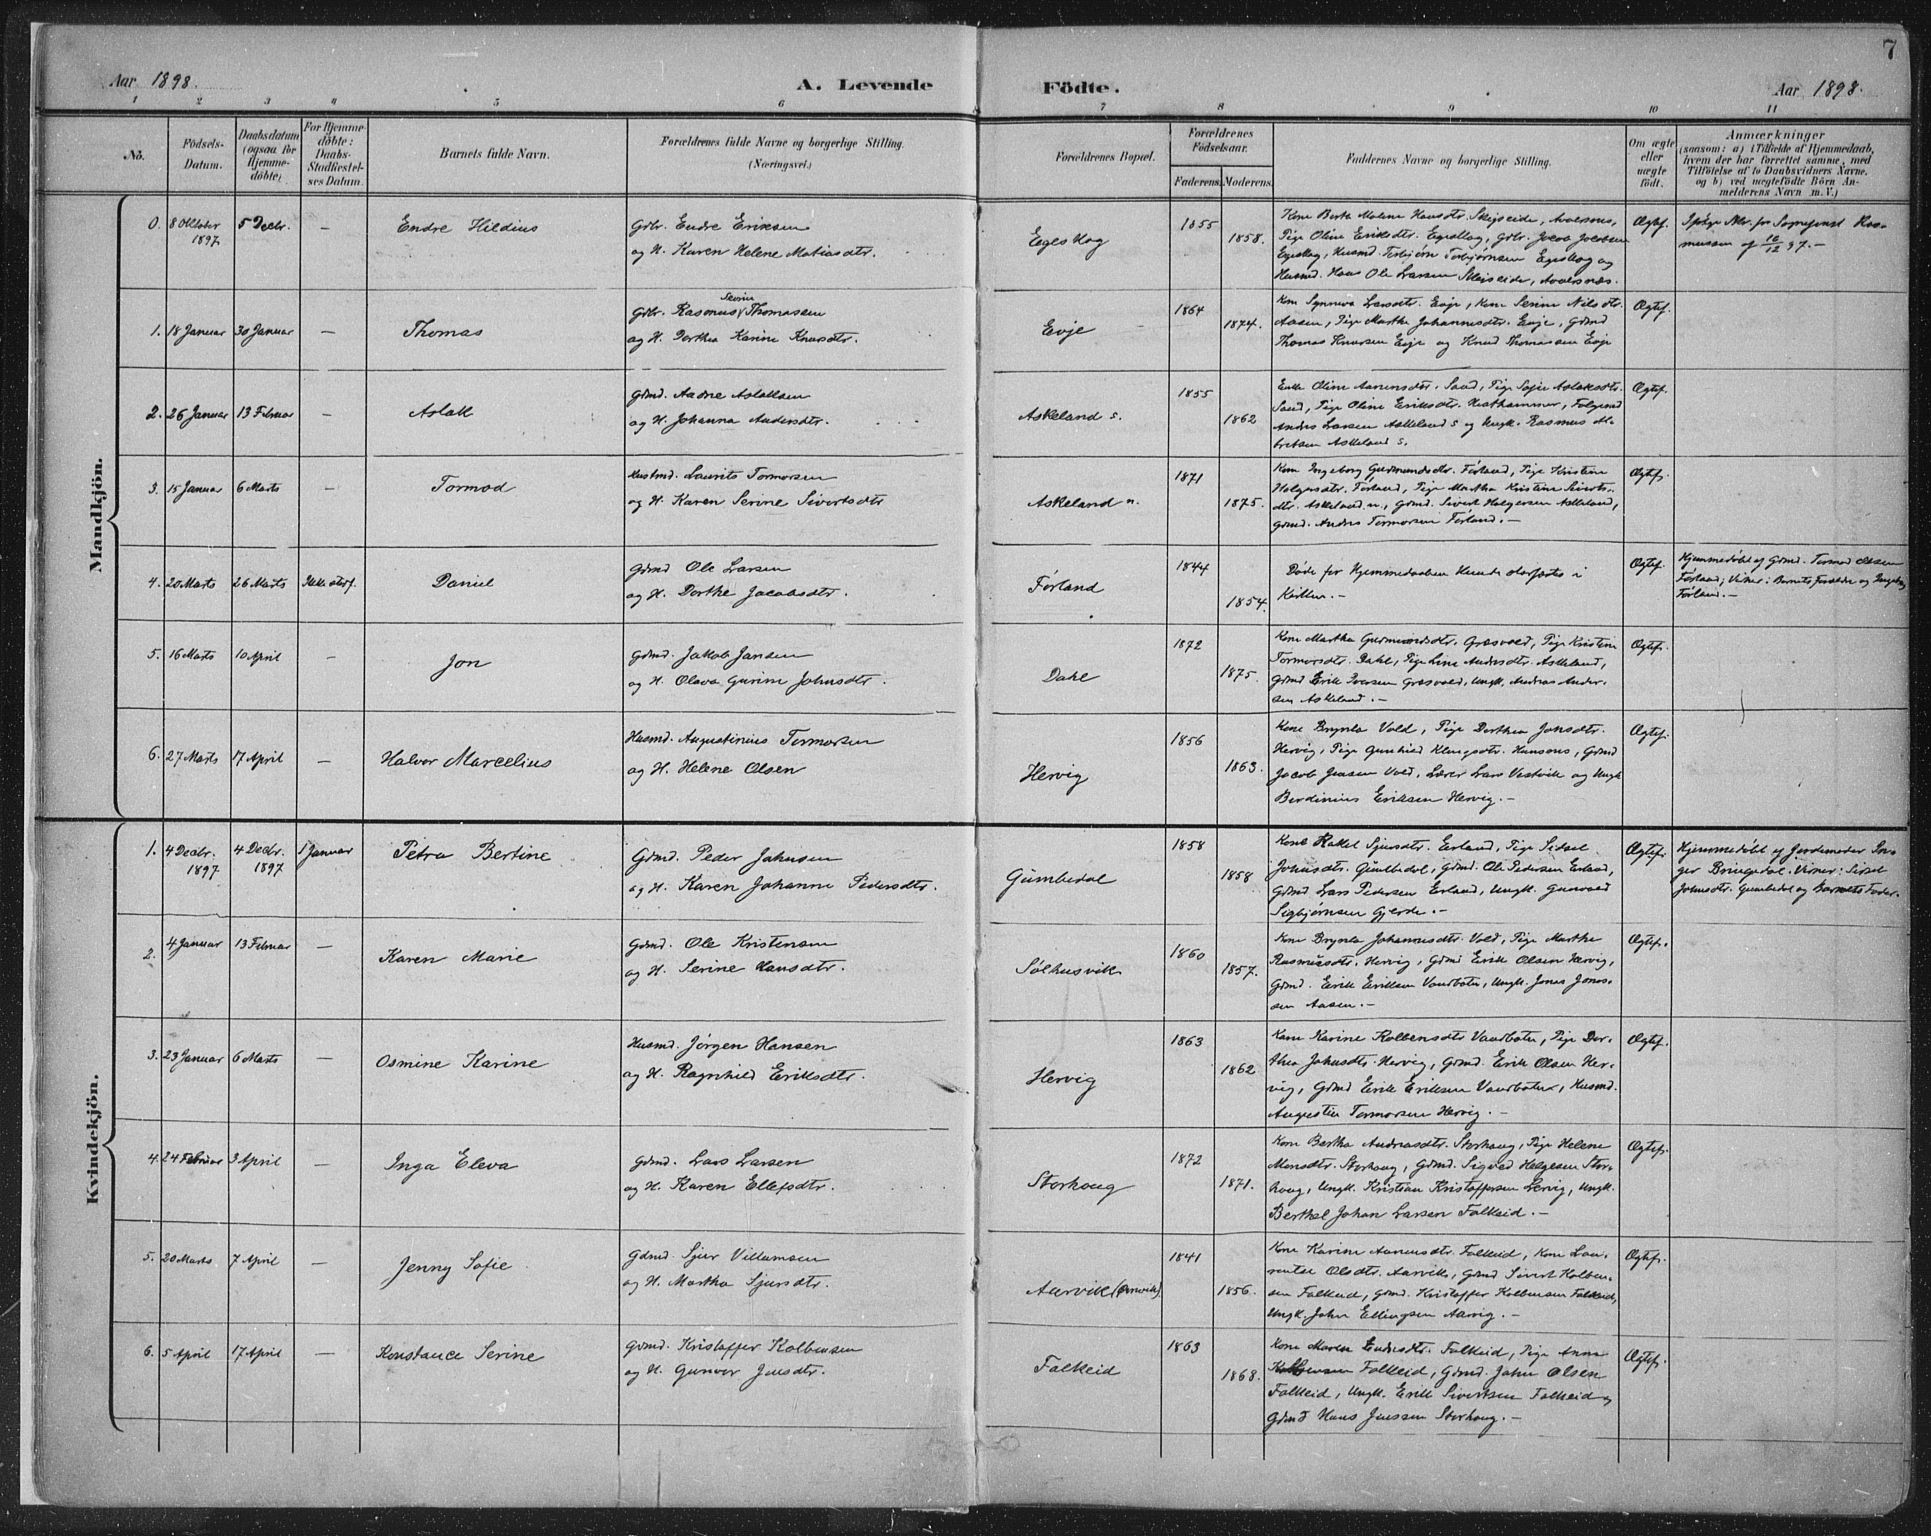 7
Aar 1898. A. Levende Födte. Aar 1898.
1 2 3 4 5 6 7 8 9 10 11
No. Födsels-Datum. Daabsdatum (ogsaa for Hjemme-döbte) For Hjemme-döbte: Daabs-Stadfæstel-ses Datum. Barnets fulde Navn. Forældrenes fulde Navne og borgerlige Stilling. (Næringsvei.) Forældrenes Bopæl. Forældrenes Födselsaar. Faderens. Moderens. Faddernes Navne og borgerlige Stilling. Om ægte eller uægte födt. Anmærkninger (saasom: a) i Tilfælde af Hjemmedaab, hvem der har forrettet samme, med Tilföielse af to Daabsvidners Navne, og b) ved uægtefödte Börn An-melderens Navn m. V.)
Mandkjön.
0. 8 Oktober 1897 5 Decbr. — Endre Hildius
Gdbr. Endre Eriksen
og H. Karen Helene Matiasdtr.
Egeskog 1855 1858.
Kone Berth Malene Hansdtr. Skeiseide, Avalsnes,
Pige Oline Eriksdtr. Egeskog, Gdbr. Jacob Jacobsen
Egeskog, Husmd. Torbjørn Torbjørnsen Egeskog og
Husmd. Hans Ole Larsen Skeiseide, Avalsnæs.
Ægtef.
1. 18 Januar 30 Januar — Thomas
Gdbr. Rasmus Severin Thomassen
og H. Dorthea Karine Knudsdtr.
Evje 1864 1874.
Kone Synneva Larsdtr. Evje, Kone Serine Nilsdtr.
Aasen, Pige Martha Johannesdtr. Evje, Gdmd
Thomas Knutsen Evje og Knud Thomassen Evje
Ægtef.
2. 26 Januar 13 Februar — Aslak
Gdmd. Aadne Aslaksen
og H. Johanna Andersdtr.
Askeland s. 1855 1862
Enke Oline Aanensdtr. Sand, Pige Sofie Aslaksdtr.
Sand, Pige Oline Eriksdtr. Hesthammer, Følgemd
Anders Larsen Askeland s og Ungk. Rasmus Al-
bretsen Askeland s.
Ægtef.
3. 15 Januar 6 Marts — Tormod
Husmd. Laurits Tormodsen
og H. Karen Serine Sivertsdtr
Askeland n. 1871 1875.
Kone Ingeborg Gudmundsdtr. Førland, Pige Kristine
Holgersdtr. Førland, Pige Martha Kristine Siverts-
dtr. Askeland n., Gdmd. Sivert Helgesen Askeland,
Gdmd. Anders Tormodsen Førland. —
Ægtef.
4. 20 Marts 26 Marts Ikke stadf. Daniel
Gdmd Ole Larsen
og H. Dorthe Jacobsdtr.
Førland 1844 1854.
Døde før Hjemmedaaben kunde stadfæstes i
Kirken. —
Ægtef.
Hjemmedøbt af Gdmd. Tormod Olsen
Førland; Vidner: Barnets Forældre og
Førland. —
5. 16 Marts 10 April — Jon
Gdmd. Jakob Jansen
og H. Olava Gurine Johnsdtr.
Dahl 1872 1875.
Kone Martha Gudmundsdtr. Græsvold, Pige Kristine
Tormodsdtr. Dahl, Pige Line Andersdtr. Askeland,
Gdmd Erik Iversen Græsvold, Ungk. Andreas Ander-
sen Askeland. —
Ægtef.
6. 27 Marts 17 April — Halvor Marcelius
Husmd. Augustinius Tormodsen
og H. Helene Olsen
Hervig 1856 1863.
Kone Brynla Vold, Pige Dorthea Jonsdtr.
Hervig, Pige Gunhild Hansøns, Gdmd
Jacob Jensen Vold, Lærer Lars Vestvik og Ungk
Berdinius Eriksen Hervig. —
Ægtef.
Kvindekjön.
1. 4 Decbr. 1897 4 Decbr. 1897 1 Januar Petra Bertine
Gdmd. Peder Johnsen
og H. Karen Johanne Pedersdtr.
Gumbedal 1858 1858
Kone Rakel Sjursdtr. Erland, Pige Sidsel
Johnsdtr. Gumbedal, Gdmd. Ole Pedersen Erland,
Gdmd Lars Pedersen Erland, Ungk. Gunvald
Sigbjørnsen Gjerde. —
Ægtef.
Hjemmedøbt af Jordemoder In-
ger Bringedal. Vidner: Sidsel
Johnsdtr. Gumbedal og Barnets Fader.
2. 4 Januar 13 Februar — Karen Marie
Gdmd. Ole Kristensen
og H. Serine Hansdtr.
Sølhusvik 1860 1857.
Kone Brynla Johannesdtr. Vold, Pige Marthe
Rasmusdtr. Hervig, Gdmd Erik Olsen Hervig,
Gdmd. Erik Eriksen Vandbaten, Ungk. Jonas Jonas-
sen Aasen. —
Ægtef.
3. 23 Januar 6 Marts — Osmine Karine
Husmd. Jørgen Hansen
og H. Ragnhild Eriksdtr.
Hervig 1863 1862.
Kone Karine Kolbensdtr Vandbaten, Pige Dor-
thea Johnsdtr. Hervig, Gdmd. Erik Olsen Her-
vig, Gdmd Erik Eriksen Vandbaten, Husmd.
Augustin Tormodsen Hervig. —
Ægtef.
4. 24 Februar 3 April — Inga Eleva
Gdmd. Lars Larsen
og H. Karen Ellefsdtr.
Storhoug 1872 1871.
Kone Bertha Andreasdtr. Storhoug, Pige Helene
Monsdtr. Storhoug, Gdmd. Sigvad Helgesen Stor-
houg, Ungk. Kristian Kristoffersen Lervig, Ungk.
Berthel Johan Larsen Falkeid. —
Ægtef.
5. 20 Marts 7 April — Jenny Sofie
Gdmd. Sjur Villumsen
og H. Martha Sjursdtr.
Aarvik (Ørnvik) 1841 1856.
Kone Karine Aanensdtr. Falkeid, Kone Lau-
rentse Olsdtr. Aarvik, Gdmd Sivert Kolben-
sen Falkeid, Gdmd. Kristoffer Kolbensen Falkeid,
Ungk. John Ellingsen Aarvig. —
Ægtef.
6. 5 April 17 April — Konstance Serine
Gdmd. Kristoffer Kolbensen
og H. Gunvor Jensdtr.
Falkeid 1863 1868.
Kone Maren Endresdtr. Falkeid, Pige Anna
Falkeid, Gdmd. John Olsen
Falkeid, Ungk. Erik Sivertsen Falkeid og
Gdmd Hans Jenssen Storhoug. —
Ægtef.